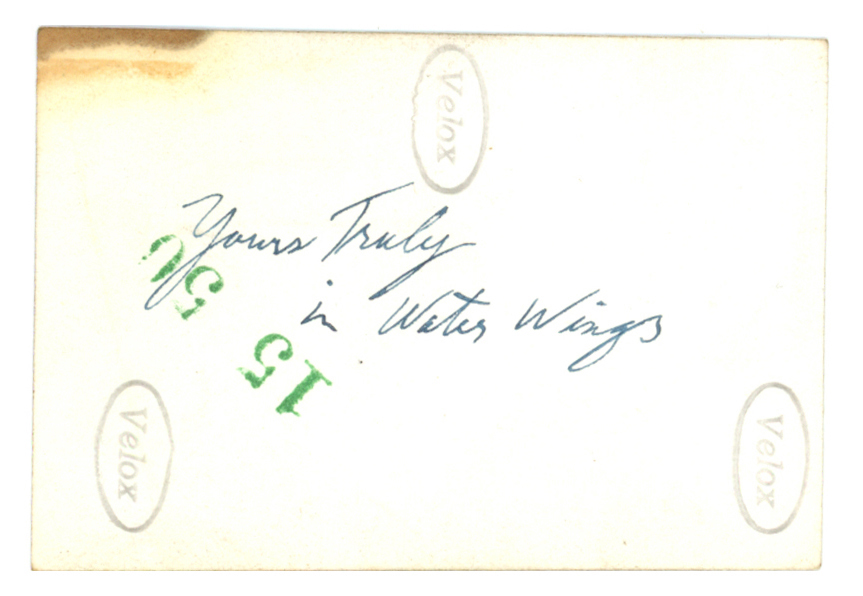 Velox
Yours Truly
in Water Wings
15
Velox
Velox